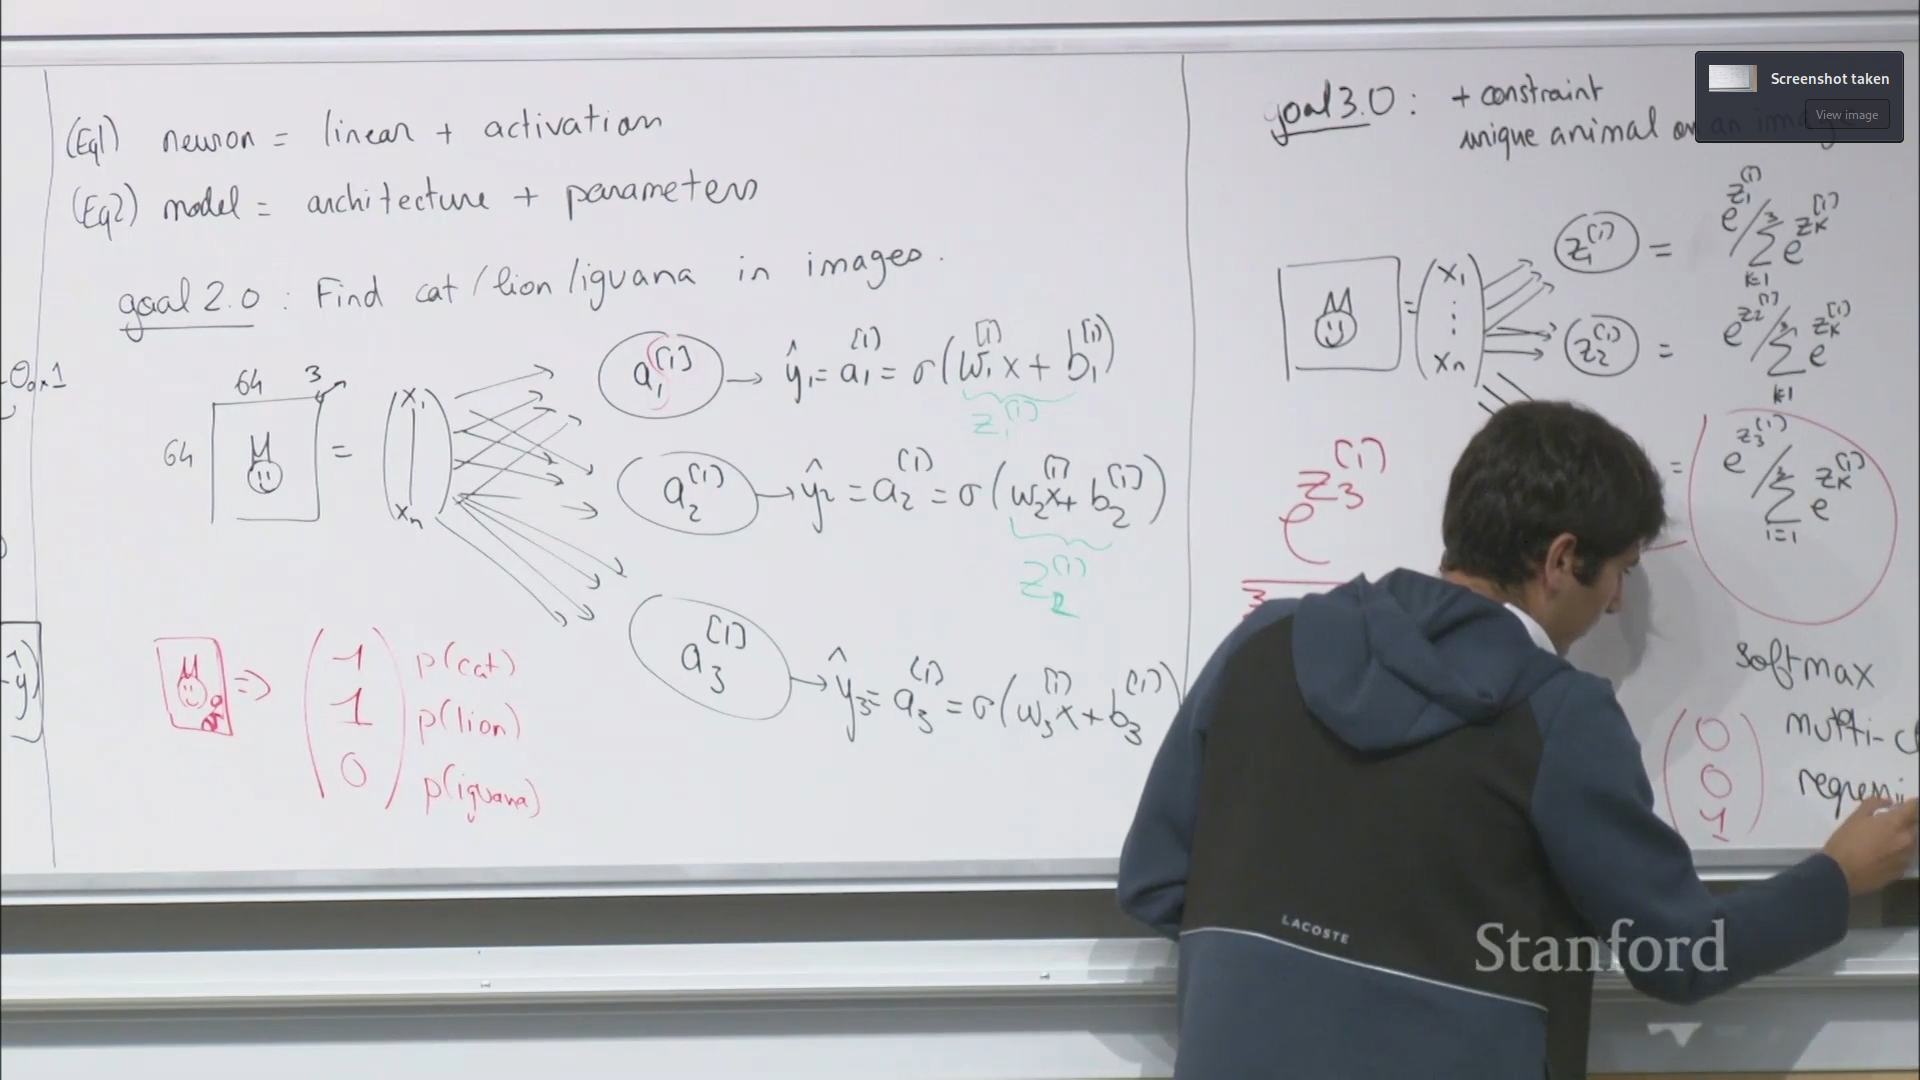 (Eq1) neuron = linear + activation
(Eq2) model = architecture + parameters
goal 2.0 : Find cat/lion/iguana in images.
64
3
64
=
x₁
xₙ
a₁^[1] → ŷ₁ = a₁^[1] = σ(w₁^[1] x + b₁^[1])
z₁^[1]
a₂^[1] → ŷ₂ = a₂^[1] = σ(w₂^[1] x + b₂^[1])
z₂^[1]
a₃^[1] → ŷ₃ = a₃^[1] = σ(w₃^[1] x + b₃^[1])
=>
1 p(cat)
1 p(lion)
0 p(iguana)
goal 3.0 : + constraint
unique animal on an image
=
x₁
⋮
xₙ
z₁^[1] = e^{z₁^[1]} / Σ_{k=1}^{3} e^{z_k^[1]}
z₂^[1] = e^{z₂^[1]} / Σ_{k=1}^{3} e^{z_k^[1]}
= e^{z₃^[1]} / Σ_{i=1}^{3} e^{z_k^[1]}
e^{z₃^[1]}
3
softmax
multi-c
regressi
0
0
1
LACOSTE
Stanford
Screenshot taken
View image